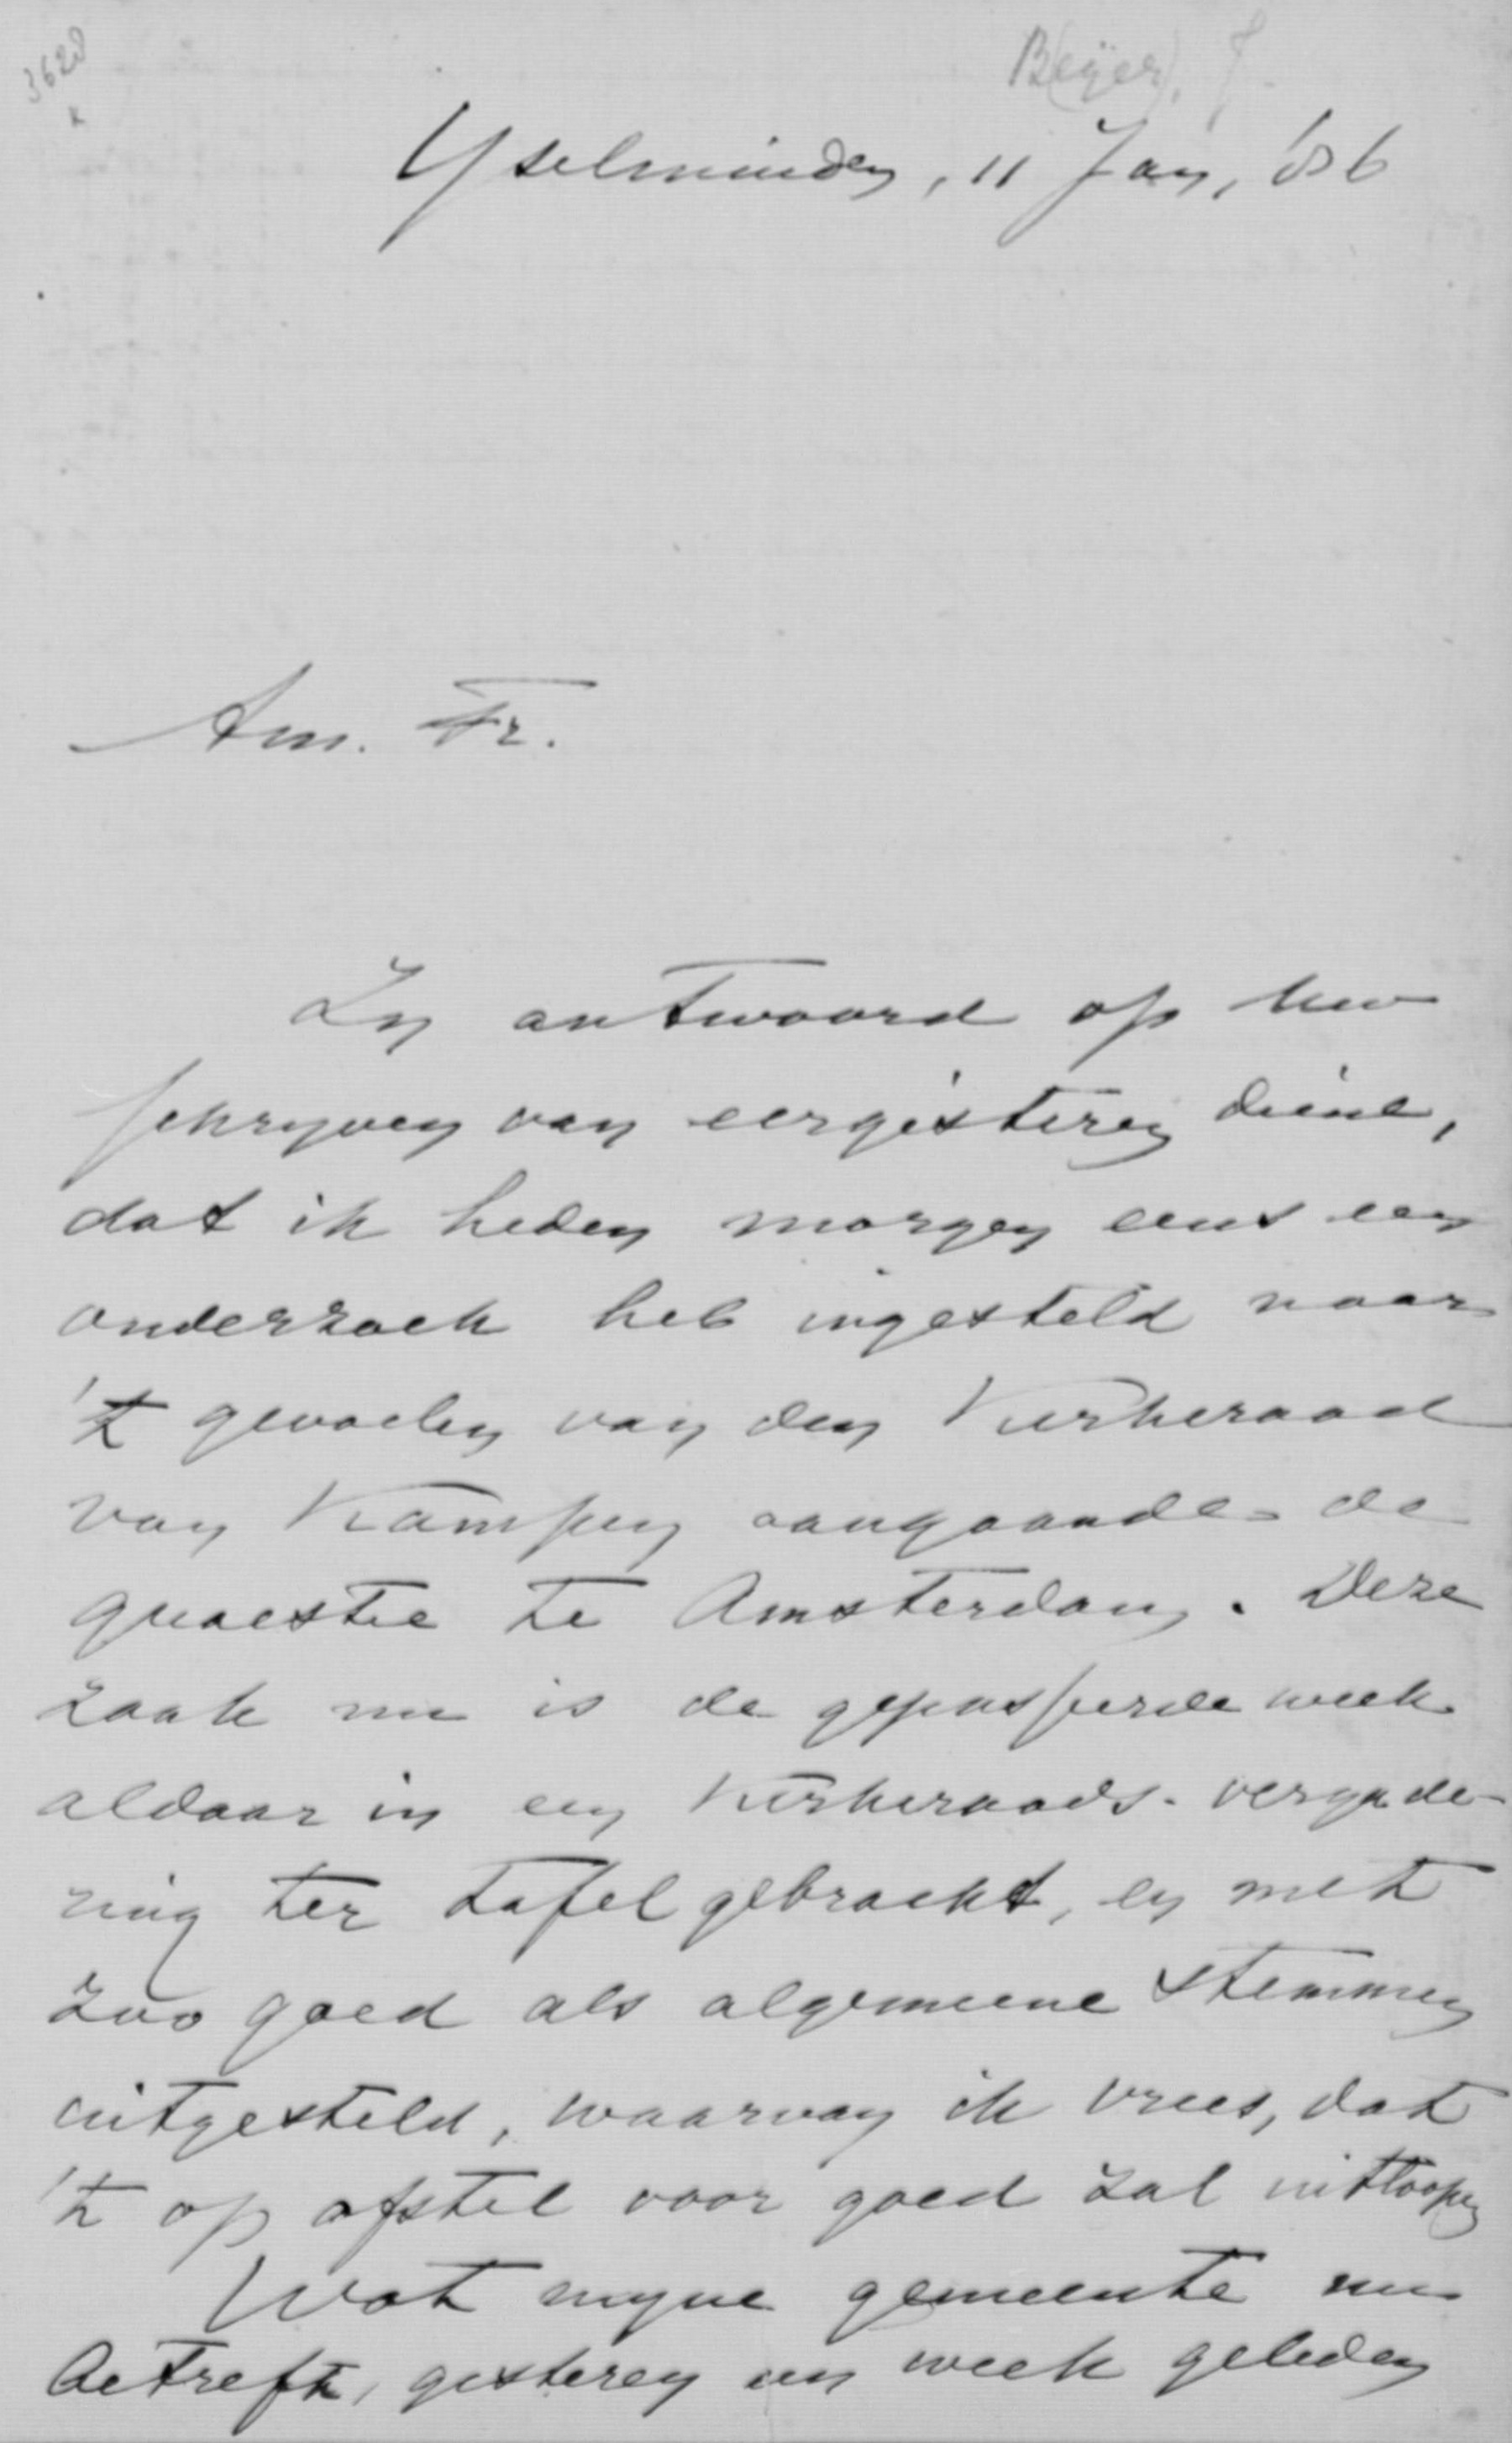 3620
Beijer, J.
Yselmuiden, 11 Jan, '86
Am. Fr.
In antwoord op uw
schryven van eergisteren diene,
dat ik heden morgen eens een
onderzoek heb ingesteld naar
't gevoelen van den Kerkeraad
van Kampen aangaande de
quaestie te Amsterdam. Deze
zaak nu is de gepasseerde week
aldaar in een Kerkeraads-vergade-
ring ter tafel gebracht, en met
zoo goed als algemeene stemmen
uitgesteld, waarvan ik vrees, dat
't op afstel voor goed zal uitloopen
Wat myne gemeente nu
betreft, gisteren een week geleden